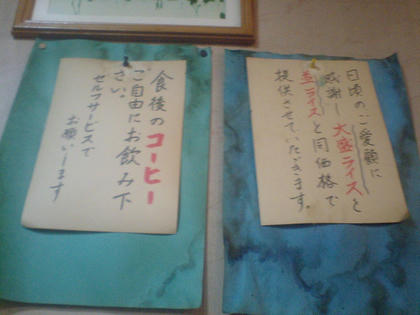 日頃のご愛顧に
感謝し大盛ライスと
並ライスと同価格で
提供させていただきます。
食後のコーヒー
ご自由にお飲み下
さい。
セルフサービスで
お願いします